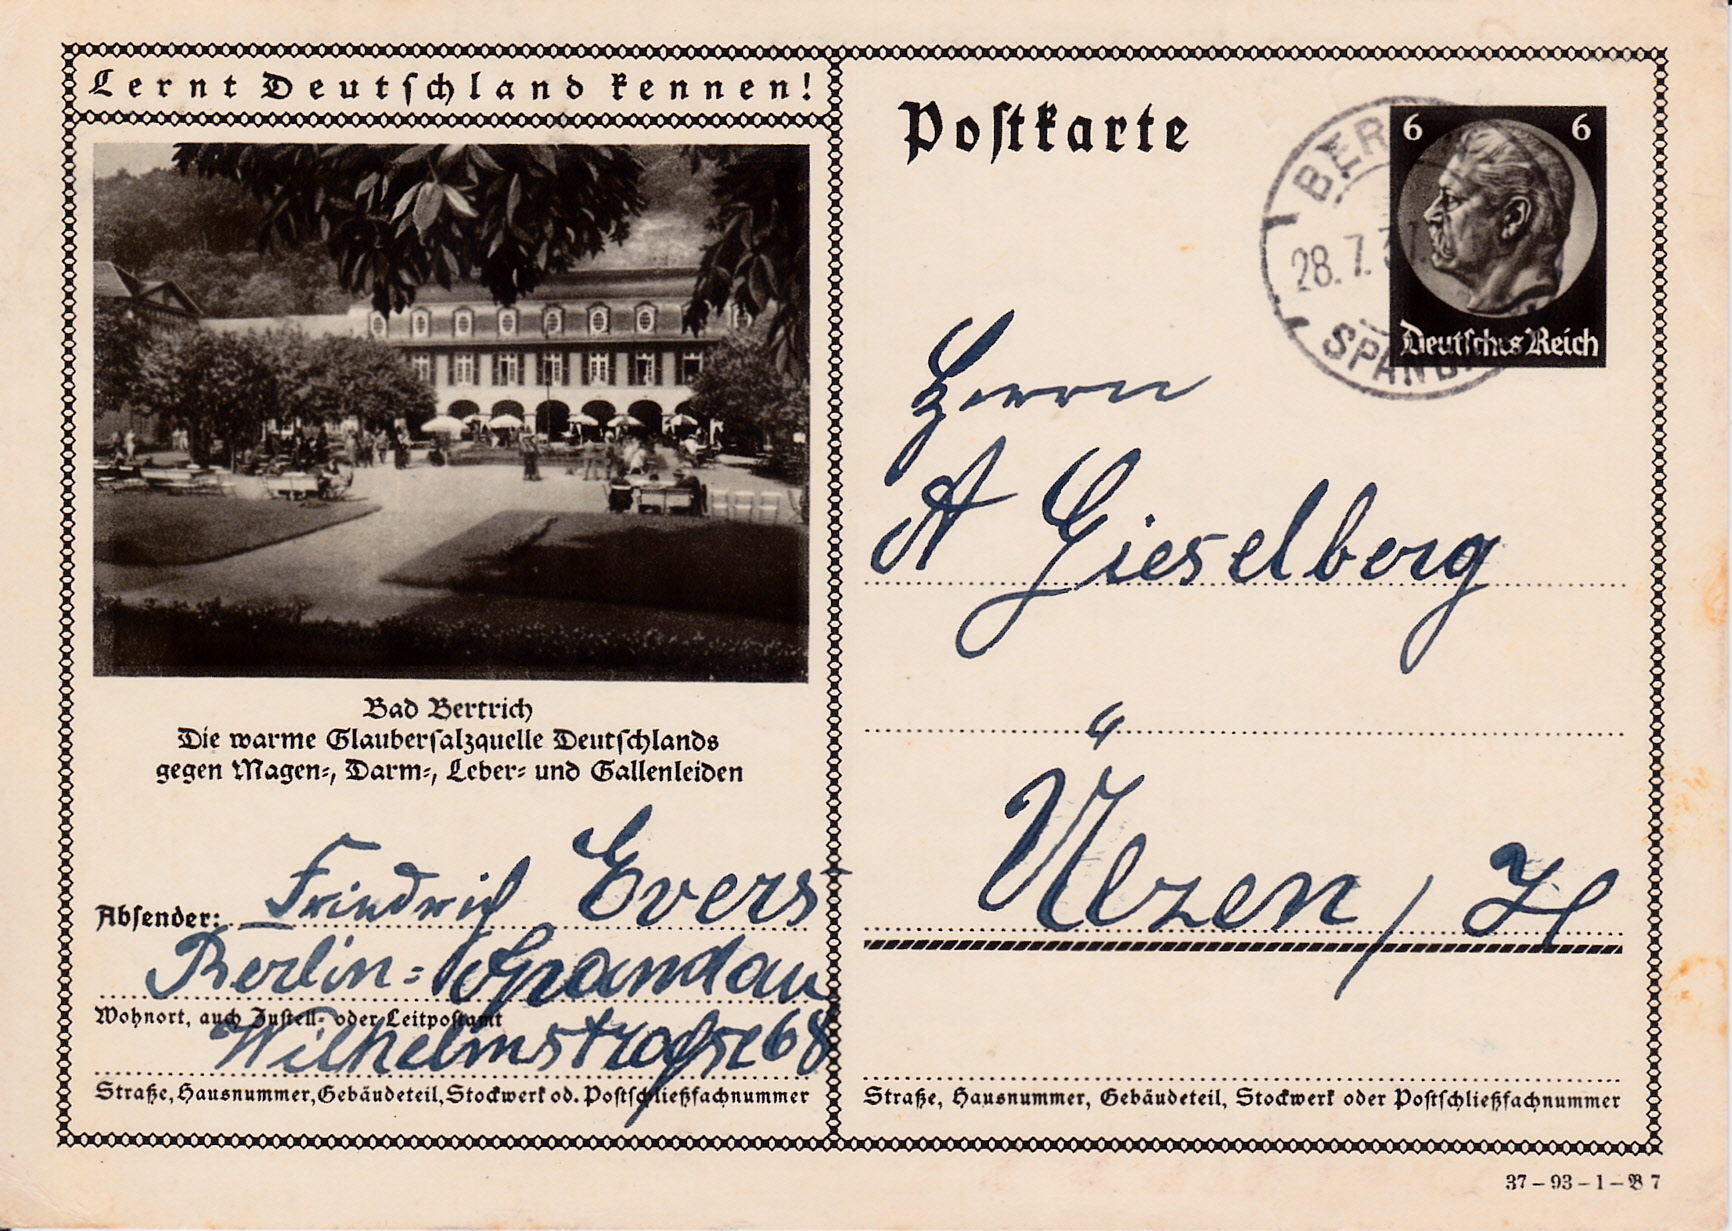 Lernt Deutschland kennen!
Bad Bertrich
Die warme Glaubersalzquelle Deutschlands
gegen Magen-, Darm-, Leber- und Gallenleiden
Absender: Friedrich Evers
Berlin-Spandau
Wohnort, auch Zustell- oder Leitpostamt
Wilhelmstrasse 68
Straße, Hausnummer, Gebäudeteil, Stockwerk od. Postschließfachnummer
Postkarte
28.7.3
6 6
Deutsches Reich
Herrn
A Gieselberg
Ülzen / H
Straße, Hausnummer, Gebäudeteil, Stockwerk oder Postschließfachnummer
37-93-1-B 7